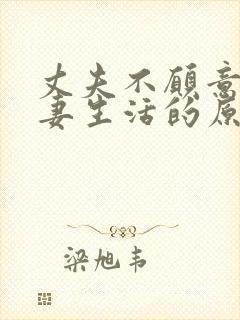 丈夫不愿意
妻生活的原
梁旭韦